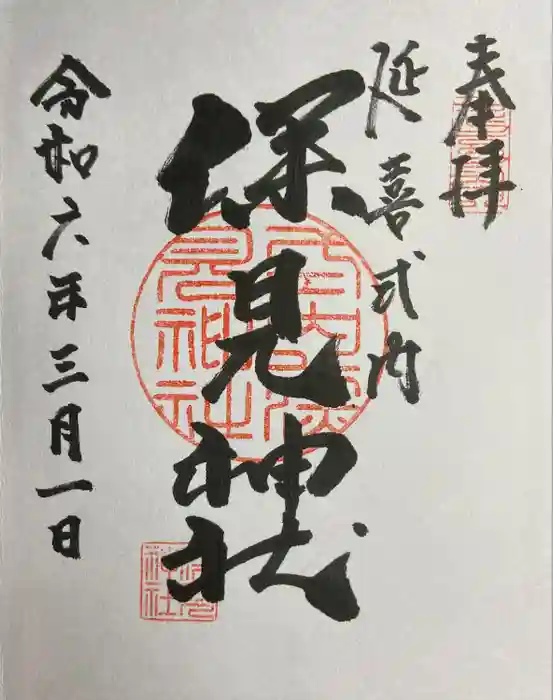 奉拝
延喜式内
深見神社
令和六年三月一日